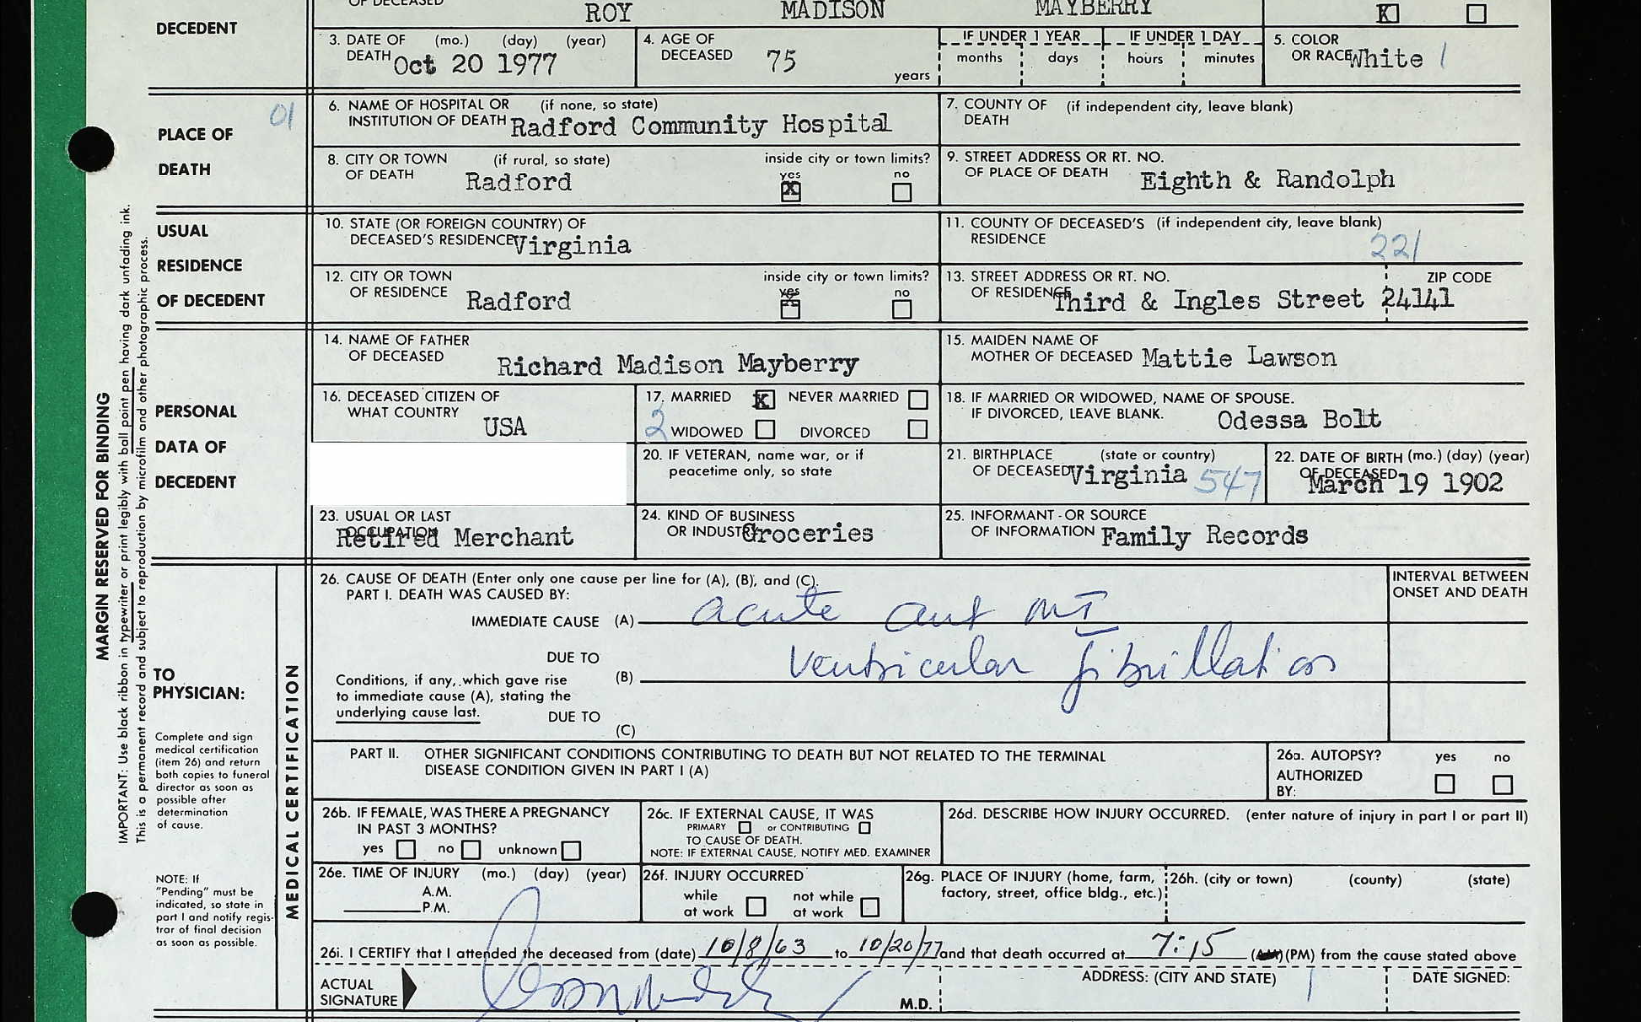 OF DECEASED ROY MADISON MAYBERRY
DECEDENT
3. DATE OF (mo.) (day) (year)
DEATH Oct 20 1977
4. AGE OF
DECEASED 75 years
IF UNDER 1 YEAR
months days
IF UNDER 1 DAY
hours minutes
5. COLOR
OR RACE White 1
PLACE OF
DEATH
01
6. NAME OF HOSPITAL OR (if none, so state)
INSTITUTION OF DEATH Radford Community Hospital
7. COUNTY OF (if independent city, leave blank)
DEATH
8. CITY OR TOWN (if rural, so state) inside city or town limits?
OF DEATH Radford yes no
9. STREET ADDRESS OR RT. NO.
OF PLACE OF DEATH Eighth & Randolph
USUAL
RESIDENCE
OF DECEDENT
10. STATE (OR FOREIGN COUNTRY) OF
DECEASED'S RESIDENCE Virginia
11. COUNTY OF DECEASED'S (if independent city, leave blank)
RESIDENCE 221
12. CITY OR TOWN inside city or town limits?
OF RESIDENCE Radford yes no
13. STREET ADDRESS OR RT. NO. ZIP CODE
OF RESIDENCE Third & Ingles Street 24141
PERSONAL
DATA OF
DECEDENT
14. NAME OF FATHER
OF DECEASED Richard Madison Mayberry
15. MAIDEN NAME OF
MOTHER OF DECEASED Mattie Lawson
16. DECEASED CITIZEN OF
WHAT COUNTRY USA
17. MARRIED NEVER MARRIED
2 WIDOWED DIVORCED
18. IF MARRIED OR WIDOWED, NAME OF SPOUSE.
IF DIVORCED, LEAVE BLANK. Odessa Bolt
20. IF VETERAN, name war, or if
peacetime only, so state
21. BIRTHPLACE (state or country)
OF DECEASED Virginia 547
22. DATE OF BIRTH (mo.) (day) (year)
OF DECEASED March 19 1902
23. USUAL OR LAST
OCCUPATION Retired Merchant
24. KIND OF BUSINESS
OR INDUSTRY Groceries
25. INFORMANT - OR SOURCE
OF INFORMATION Family Records
MARGIN RESERVED FOR BINDING
IMPORTANT: Use black ribbon in typewriter or print legibly with ball point pen having dark unfading ink.
This is a permanent record and subject to reproduction by microfilm and other photographic process.
TO
PHYSICIAN:
Complete and sign
medical certification
(item 26) and return
both copies to funeral
director as soon as
possible after
determination
of cause.
NOTE: If
"Pending" must be
indicated, so state in
part I and notify regis-
trar of final decision
as soon as possible.
MEDICAL CERTIFICATION
26. CAUSE OF DEATH (Enter only one cause per line for (A), (B), and (C).
PART I. DEATH WAS CAUSED BY:
INTERVAL BETWEEN
ONSET AND DEATH
IMMEDIATE CAUSE (A) acute ant MI
DUE TO
(B) Ventricular fibrillation
Conditions, if any, which gave rise
to immediate cause (A), stating the
underlying cause last.
DUE TO
(C)
PART II. OTHER SIGNIFICANT CONDITIONS CONTRIBUTING TO DEATH BUT NOT RELATED TO THE TERMINAL
DISEASE CONDITION GIVEN IN PART I (A)
26a. AUTOPSY? yes no
AUTHORIZED
BY:
26b. IF FEMALE, WAS THERE A PREGNANCY
IN PAST 3 MONTHS?
yes no unknown
26c. IF EXTERNAL CAUSE, IT WAS
PRIMARY or CONTRIBUTING
TO CAUSE OF DEATH.
NOTE: IF EXTERNAL CAUSE, NOTIFY MED. EXAMINER
26d. DESCRIBE HOW INJURY OCCURRED. (enter nature of injury in part I or part II)
26e. TIME OF INJURY (mo.) (day) (year)
A.M.
P.M.
26f. INJURY OCCURRED
while not while
at work at work
26g. PLACE OF INJURY (home, farm,
factory, street, office bldg., etc.)
26h. (city or town) (county) (state)
26i. I CERTIFY that I attended the deceased from (date) 10/8/63 to 10/20/77 and that death occurred at 7:15 (AM) (PM) from the cause stated above
ACTUAL
SIGNATURE M.D.
ADDRESS: (CITY AND STATE)
DATE SIGNED: